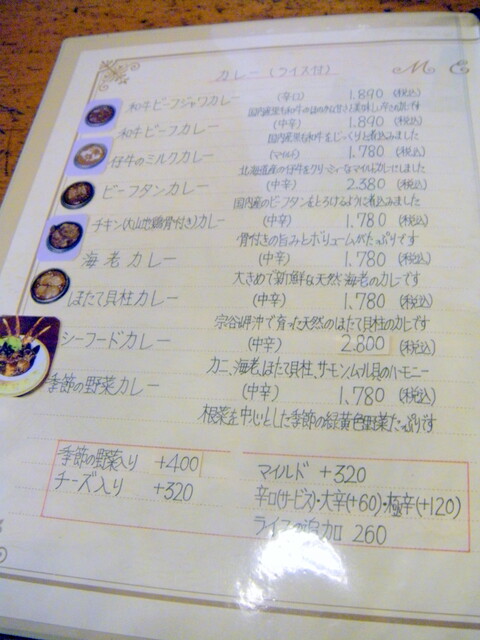 カレー(ライス付)
M E
和牛ビーフジャワカレー (辛口) 1.890 (税込)
和牛ビーフカレー (中辛) 1.890 (税込)
国内産黒毛和牛をじっくりと煮込みました
仔牛のミルクカレー (マイルド) 1.780 (税込)
北海道産の仔牛をクリーミィなマイルドカレーにしました
ビーフタンカレー (中辛) 2.380 (税込)
国内産のビーフタンをとろけるように煮込みました
チキン(大山地鶏骨付き)カレー (中辛) 1.780 (税込)
骨付きの旨みとボリュームがたっぷりです
海老カレー (中辛) 1.780 (税込)
大きめで新鮮な天然海老のカレーです
ほたて貝柱カレー (中辛) 1.780 (税込)
宗谷岬沖で育った天然のほたて貝柱のカレーです
シーフードカレー (中辛) 2.800 (税込)
カニ、海老、ほたて貝柱、サーモン、ムール貝のハーモニー
季節の野菜カレー (中辛) 1.780 (税込)
根菜を中心とした季節の緑黄色野菜たっぷりです
季節の野菜入り +400
チーズ入り +320
マイルド +320
辛口(サービス)・大辛(+60)・極辛(+120)
ライスの追加 260